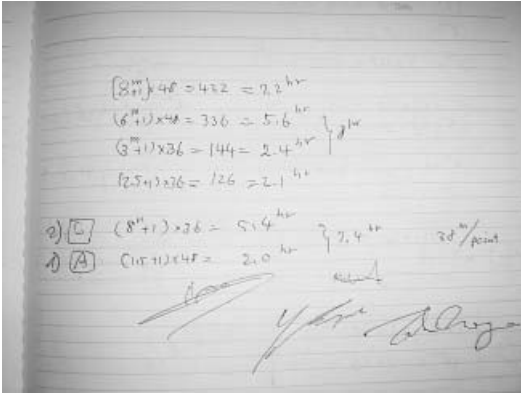 (8ᵐ+1)x48 = 432 = 7.2ʰʳ
(6ᵐ+1)x48 = 336 = 5.6ʰʳ
(3ᵐ+1)x36 = 144 = 2.4ʰʳ } 8ʰʳ
(2.5+1)x36 = 126 = 2.1ʰʳ
2) C (8ᵐ+1)x36 = 5.4ʰʳ
1) A (1.5+1)x48 = 2.0ʰʳ } 7.4ʰʳ 38ᵐ/point